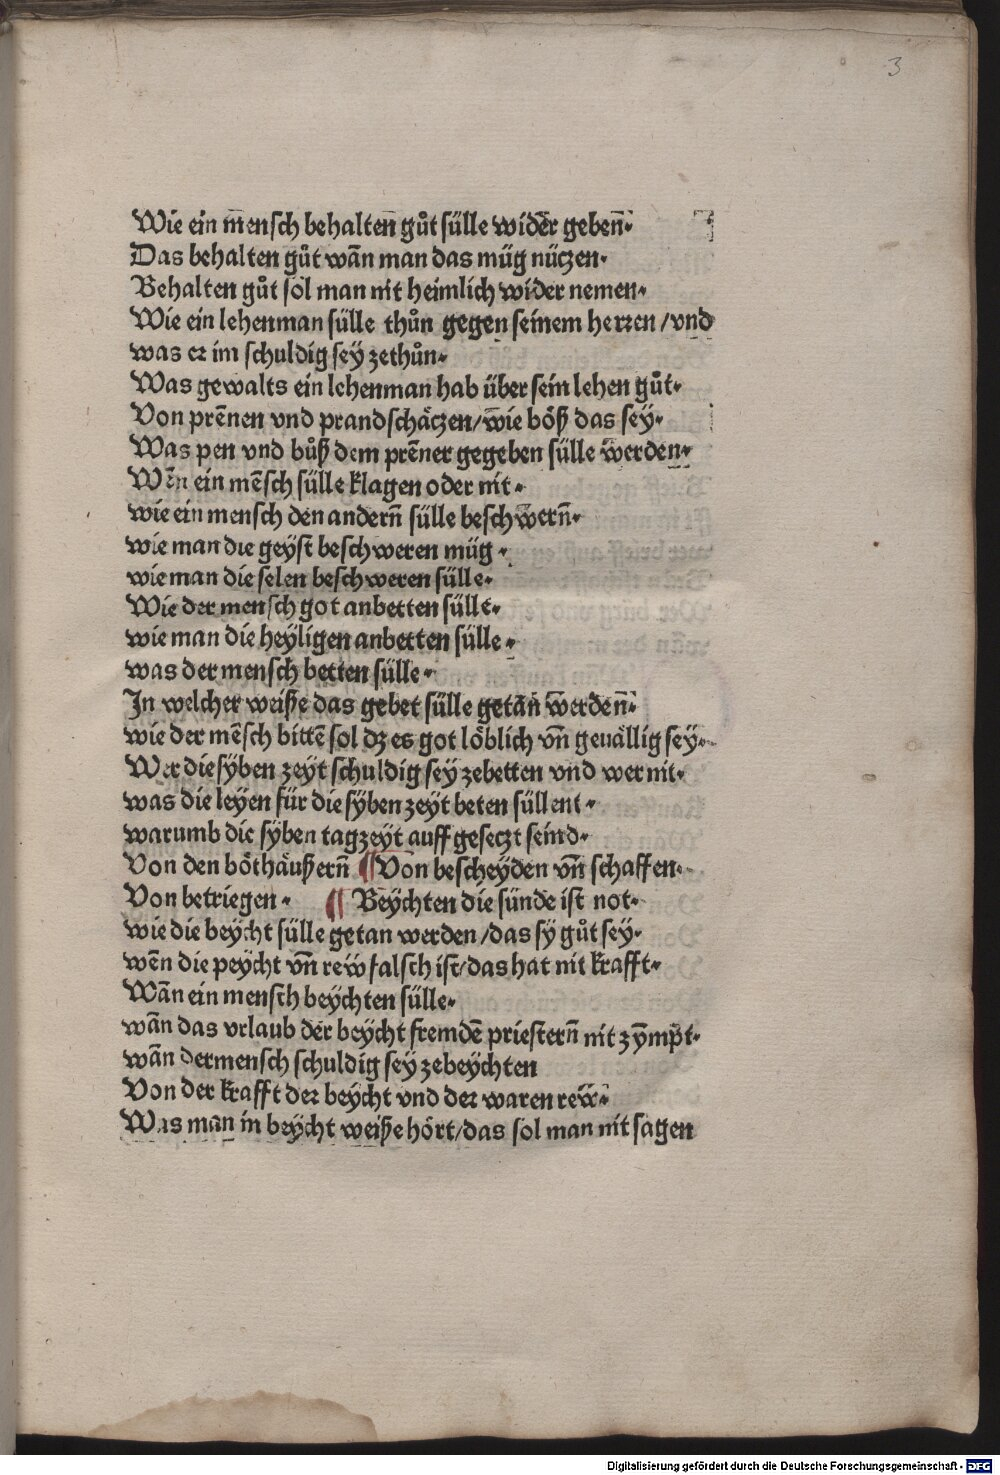 3
Wie ein m̄ensch behalten̄ gůt sülle wider geben̄·
Das behalten gůt wān man das müg nüczen·
Behalten gůt sol man nit heimlich wider nemen·
Wie ein lehenman sülle thůn gegen seinem herꝛen /vnd
was eꝛ im schuldig seÿ zethůn·
Was gewalts ein lehenman hab über sein lehen gůt·
Von prēnen vnd prandschäczen/wie böß das seÿ·
Was pen vnd bůß dem prēner gegeben sülle werden·
Wēn ein mēsch sülle klagen oder nit·
wie ein mensch den andern̄ sülle beschwern̄·
wie man die geÿst beschweren müg·
wie man die selen beschweren sülle·
Wie der mensch got anbetten sülle·
wie man die heÿligen anbetten sülle·
was der mensch betten sülle·
In welcher weiße das gebet sülle getān werden̄·
wie der mēsch bittē sol dz es got löblich vn̄ geuällig seÿ·
Wer die sÿben zeÿt schuldig seÿ zebetten vnd wer nit·
was die leÿen für die sÿben zeÿt beten süllent·
warumb die sÿben tagzeÿt auff geseczt seind·
Von den böthäußern̄ ¶Von bescheÿden vn̄ schaffen·
Von betriegen· ¶ Beÿchten die sünde ist not·
wie die beÿcht sülle getan werden /das sÿ gůt seÿ·
wēn die peÿcht vn̄ rew̎ falsch ist/das hat nit krafft·
Wān ein mensch beÿchten sülle·
wān das vrlaub der beÿcht fremdē priestern̄ nit zÿmpt·
wān dermensch schuldig seÿ zebeÿchten
Von der krafft deꝛ beÿcht vnd deꝛ waren rew̎·
Was man in beÿcht weiße hört/das sol man nit sagen
Digitalisierung gefördert durch die Deutsche Forschungsgemeinschaft - DFG